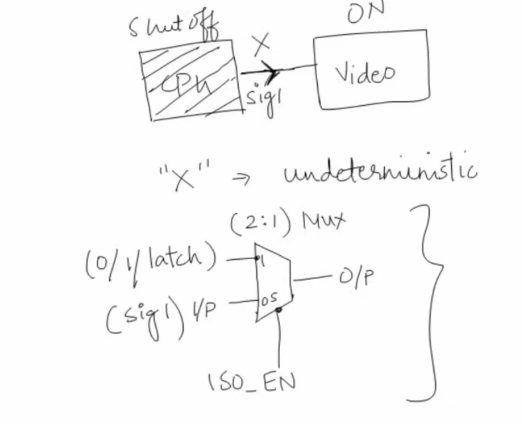 Shut off
ON
X
CPU
sig1
Video
"X" → undeterministic
(2:1) Mux
(0/1/latch)
1
O/P
(sig1) I/P
0 S
ISO_EN